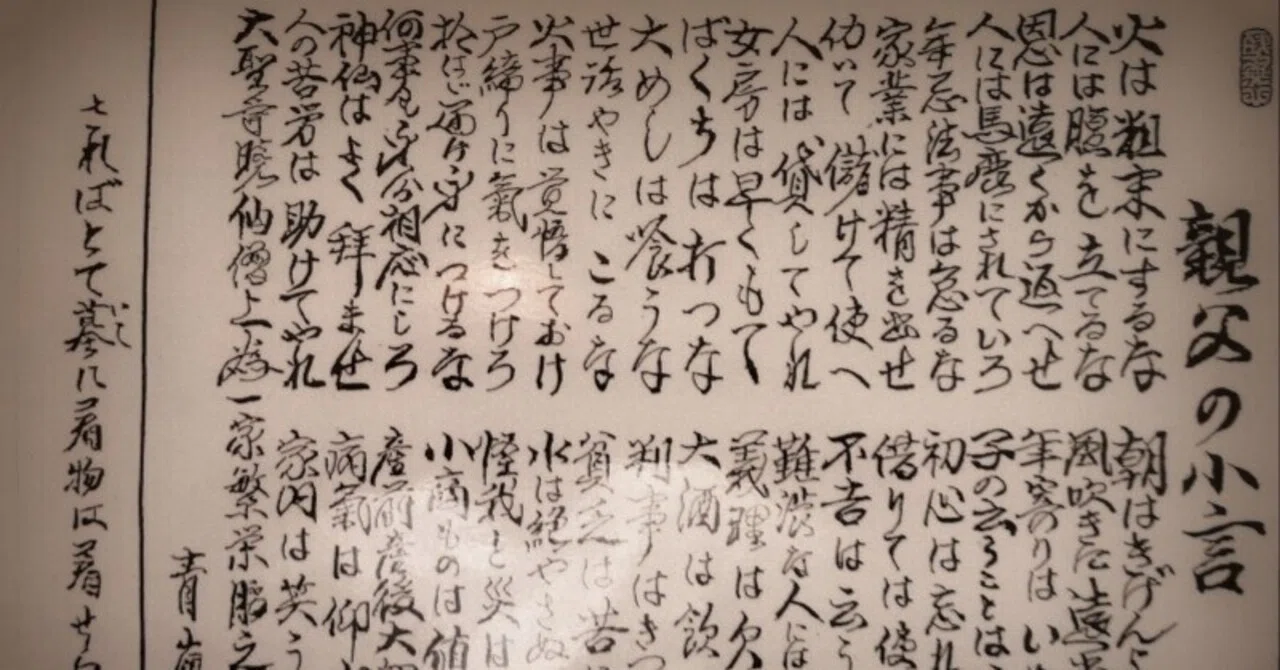 親父の小言
火は粗末にするな
朝はきげんよ
人には腹を立てるな
風吹きに遠出
恩は遠くから返へせ
年寄りはい
人には馬鹿にされていろ
子の云うことは
年忌法事は怠るな
初心は忘れ
家業には精を出せ
借りては使
働いて儲けて使へ
不吉は云う
人には貸してやれ
難渋な人には
女房は早くもて
義理は欠
ばくちは打つな
大酒は飲
大めしは喰うな
判事はきつ
世話やきになるな
貧乏は苦に
火事は覚悟しておけ
水は絶やさぬ
戸締りに気をつけろ
怪我と災は
拾はば届け身につけるな
小商ものは値
何事も身分相応にしろ
産前産後大切
神仏はよく拝ませ
病気は仰
人の苦労は助けてやれ
家内は笑う
大聖寺暁仙僧上為
一家繁栄
青山
さればとて墓に着物は着せら